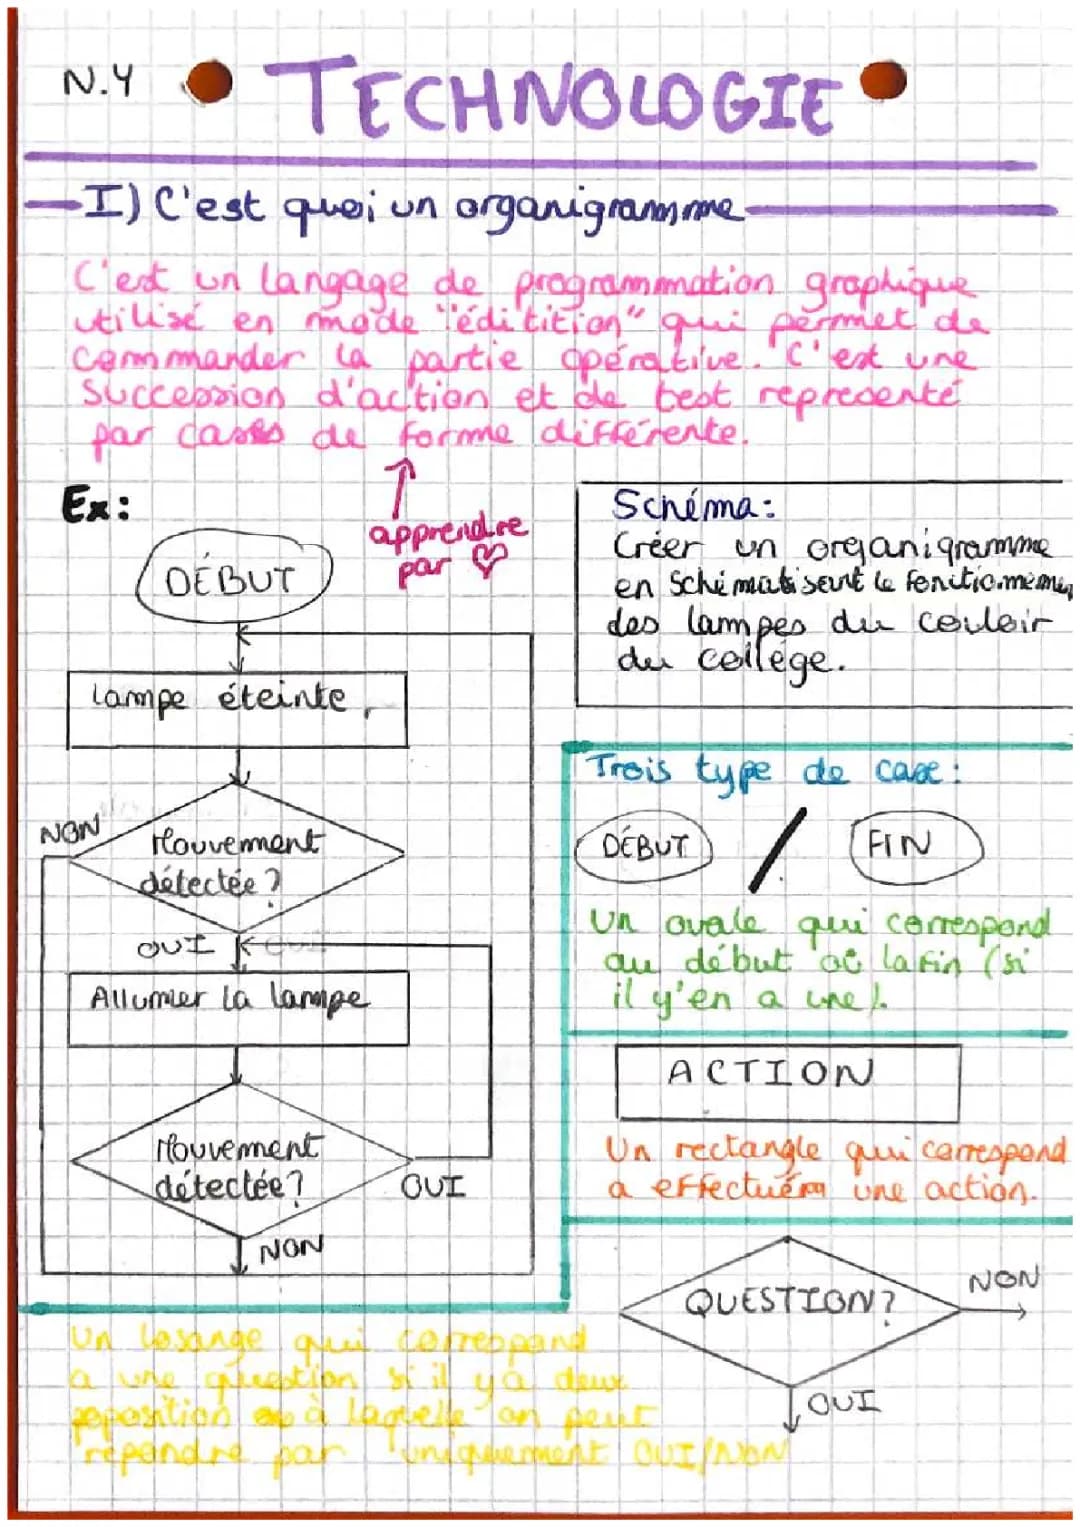 N.Y
TECHNOLOGIE
I) C'est quoi un organigramme
C'est un langage de programmation graphique
utilisé en mode "éditition" qui permet de
commander la partie opérative. C'est une
succession d'action et de test representé
par cases de forme différente.
apprendre
par ♡
Ex:
DÉBUT
Lampe éteinte
NON
Mouvement
détectée ?
OUI
Allumer la lampe
Mouvement
détectée ?
OUI
NON
Schéma:
Créer un organigramme
en schématisent le
des lampes du couloir
du collège.
Trois type de case :
DÉBUT / FIN
Un ovale qui correspond
au début où la fin (si
il y'en a une).
ACTION
Un rectangle qui correspond
a effectuér une action.
QUESTION ?
NON
OUI
Un losange qui correspond
a une question si il y a deux
poposition à laquelle on peut
répondre par uniquement OUI/NON